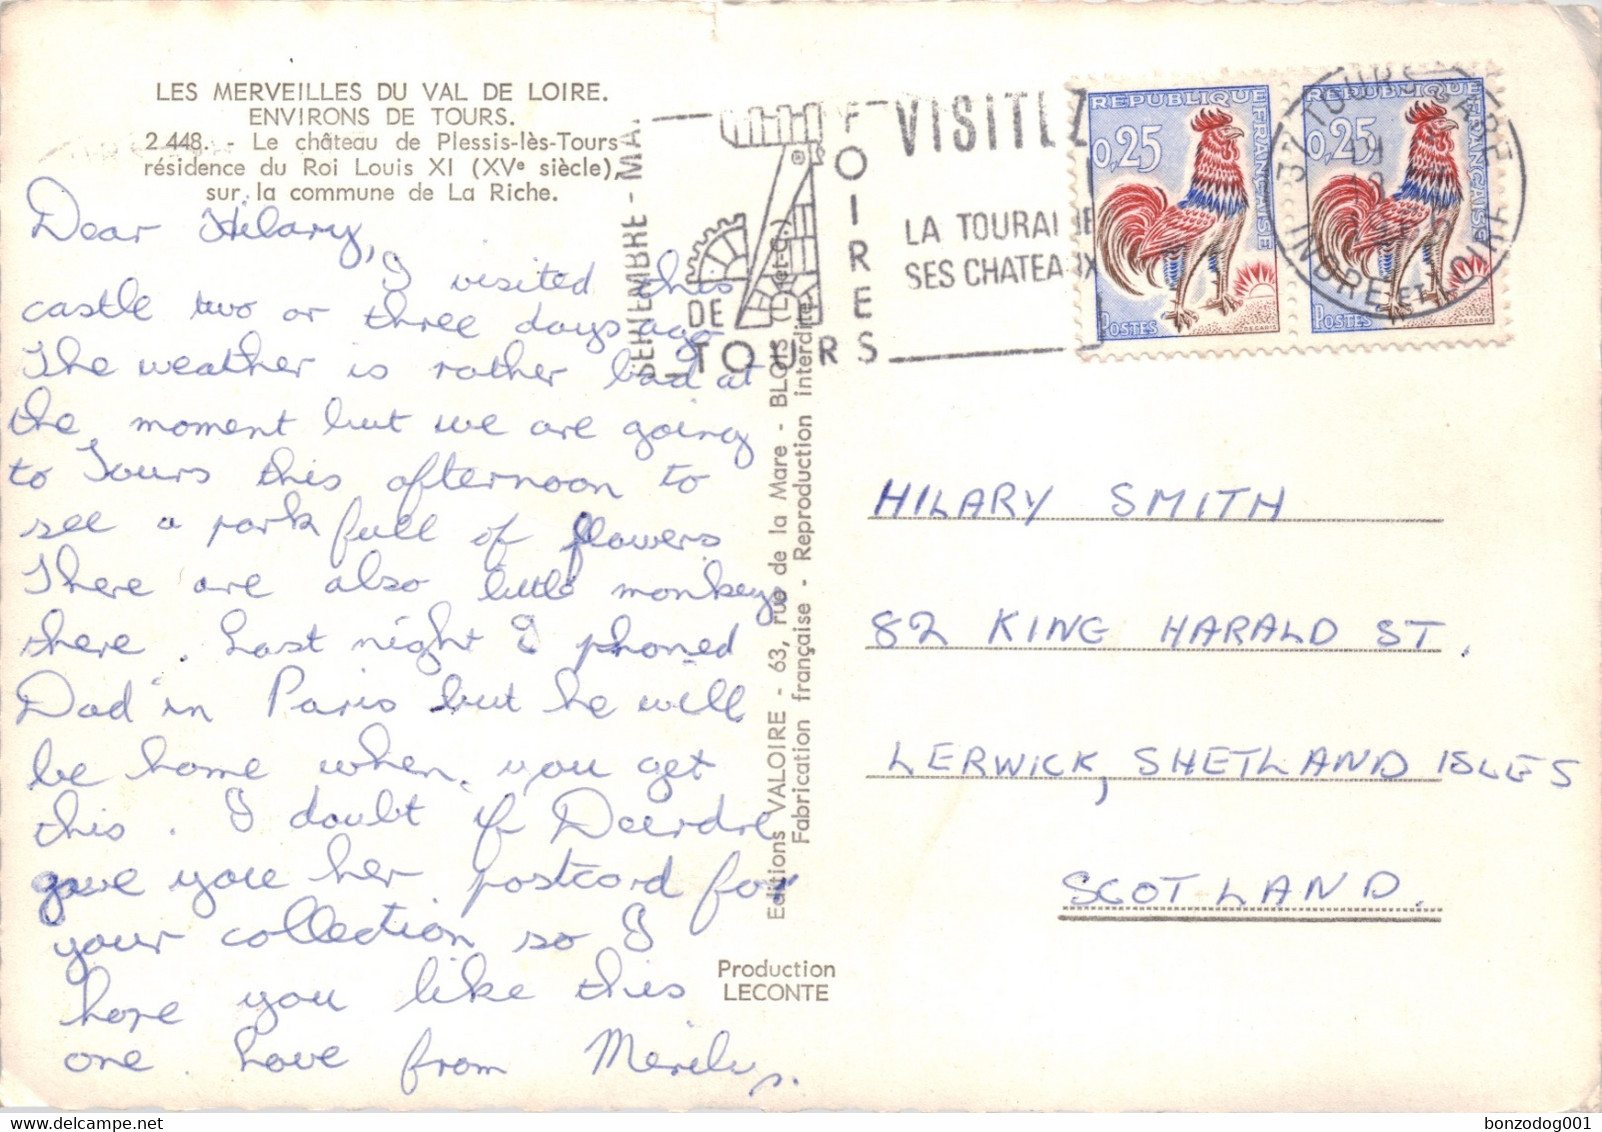 LES MERVEILLES DU VAL DE LOIRE.
ENVIRONS DE TOURS.
2 448. - Le château de Plessis-lès-Tours
résidence du Roi Louis XI (XVe siècle),
sur la commune de La Riche.
Dear Hilary,
I visited this
castle two or three days ago
The weather is rather bad at
the moment but we are going
to Tours this afternoon to
see a park full of flowers.
There are also little monkeys
there. Last night I phoned
Dad in Paris but he will
be home when you get
this. I doubt if Deerdre
gave you her postcard for
your collection so I
hope you like this
one. Love from Merilys.
Editions VALOIRE - 63, rue de la Mare - BLOIS (L.-et-C.)
Fabrication française - Reproduction interdite
Production
LECONTE
SEPTEMBRE - MAI
FOIRES
DE
TOURS
VISITEZ
LA TOURAINE
SES CHATEAUX
REPUBLIQUE FRANÇAISE
0,25
POSTES
DECARIS
REPUBLIQUE FRANÇAISE
0,25
POSTES
DECARIS
37 TOURS GARE
INDRE ET LOIRE
HILARY SMITH
82 KING HARALD ST.
LERWICK, SHETLAND ISLES
SCOTLAND.
bonzodog001